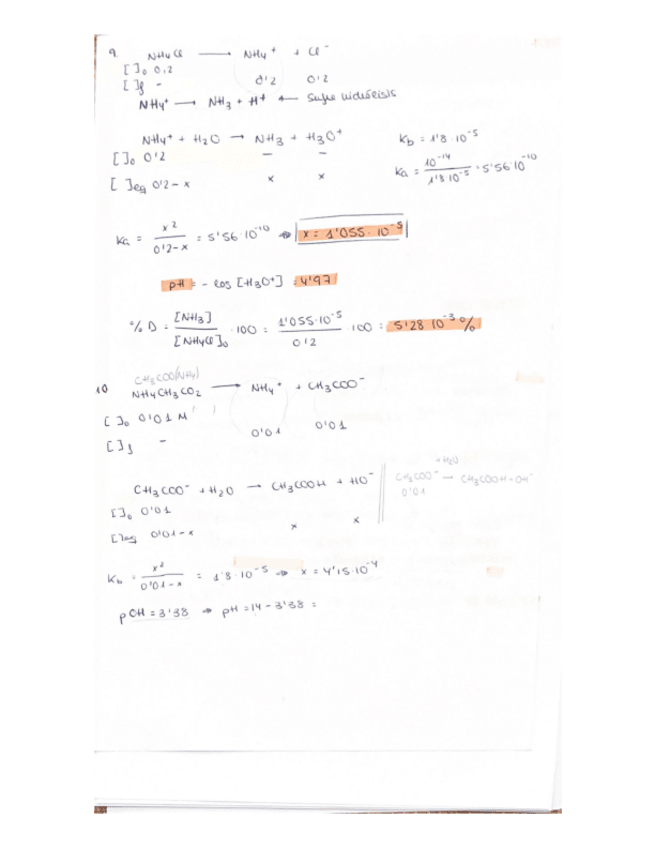 9. NH4Cl → NH4+ + Cl-
[ ]0 0,2
[ ]f - 0'2 0'2
NH4+ → NH3 + H+ ← Sufre hidrólisis
NH4+ + H2O → NH3 + H3O+ Kb = 1'8 · 10^-5
[ ]0 0'2 - - Ka = 10^-14 / 1'8·10^-5 = 5'56·10^-10
[ ]eq 0'2-x x x
Ka = x^2 / 0'2-x = 5'56·10^-10 ⇒ x = 1'055 · 10^-5
pH = - log [H3O+] = 4'97
% D = [NH3] / [NH4Cl]0 · 100 = 1'055·10^-5 / 0'2 · 100 = 5'28 10^-3 %
CH3COO(NH4)
10 NH4CH3CO2 → NH4+ + CH3COO-
[ ]0 0'01 M
[ ]f - 0'01 0'01
CH3COO- + H2O → CH3COOH + HO- CH3COO- +H2O → CH3COOH - OH-
[ ]0 0'01 0'01
[ ]eq 0'01-x x x
Kb = x^2 / 0'01-x = 1'8·10^-5 ⇒ x = 4'15·10^-4
pOH = 3'38 ⇒ pH = 14 - 3'38 =